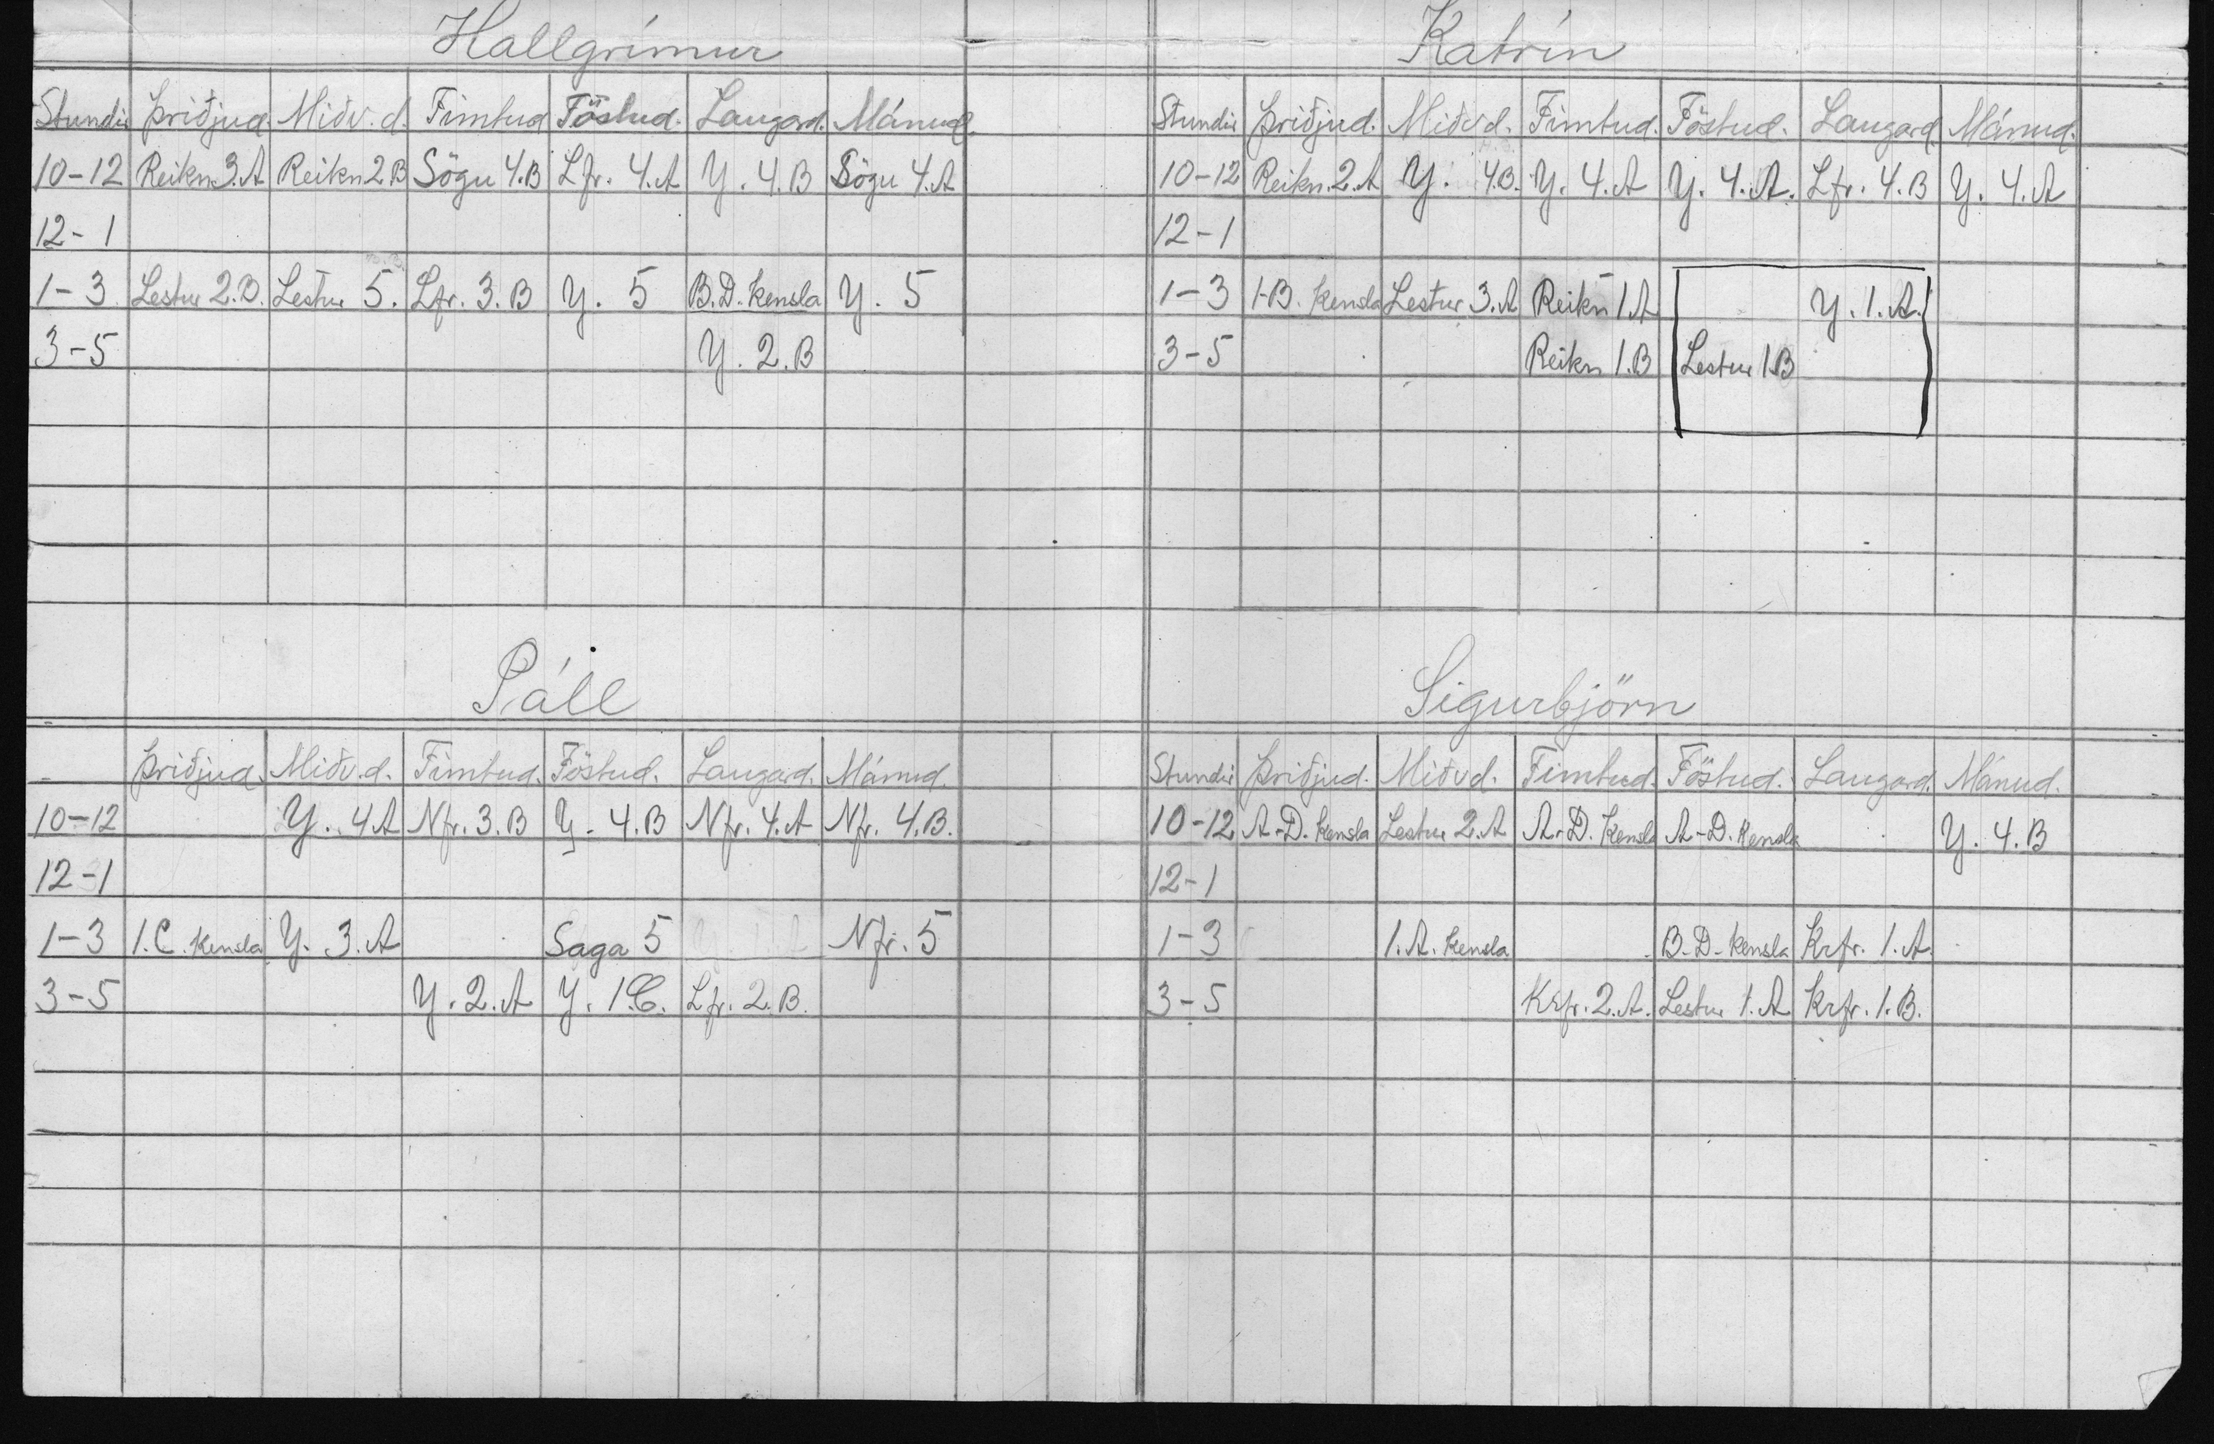 Hallgrímur
Stundir Þriðjud. Miðv.d. Fimtud Föstud. Laugard. Mánud.
10-12 Reikn 3.A Reikn 2.B Sögu 4.B Lfr. 4.A Y. 4.B Sögu 4.A
12-1
1-3 Lestur 2.B. Lestur 5. Lfr. 3.B Y. 5 B.D. kensla Y. 5
3-5 Y. 2.B
Katrín
Stundir Þriðjud. Miðvd. Fimtud. Föstud. Laugard. Mánud.
10-12 Reikn. 2.A Y. 4B. Y. 4.A Y. 4.A. Lfr. 4.B Y. 4.A
12-1
1-3 1-B. kensla Lestur 3.A Reikn 1.A Y. 1.A.
3-5 Reikn 1.B Lestur 1.B
Páll
Þriðjud. Miðv.d. Fimtud. Föstud. Laugard. Mánud.
10-12 Y. 4A Nfr. 3.B Y. 4.B Nfr. 4.A Nfr. 4.B.
12-1
1-3 1.C. kensla Y. 3.A Saga 5 Nfr. 5
3-5 Y. 2.A Y. 1.C. Lfr. 2.B.
Sigurbjörn
Stundir Þriðjud. Miðvd. Fimtud. Föstud. Laugard. Mánud.
10-12 A-D. kensla Lestur 2.A A-D. kensla A-D. kensla Y. 4.B
12-1
1-3 1.A. kensla B-D- kensla Krfr. 1.A.
3-5 Krfr. 2.A. Lestur 1.A Krfr. 1.B.